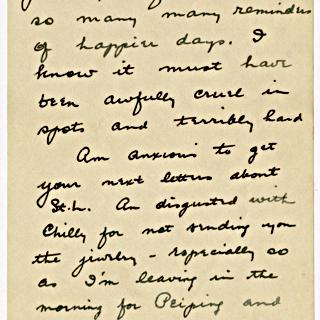 so many many reminders
of happier days. I
know it must have
been awfully cruel in
spots and terribly hard
Am anxious to get
your next letters about
St. L. Am disgusted with
Chilly for not sending you
the jewelry - especially so
as I'm leaving in the
morning for Peiping and